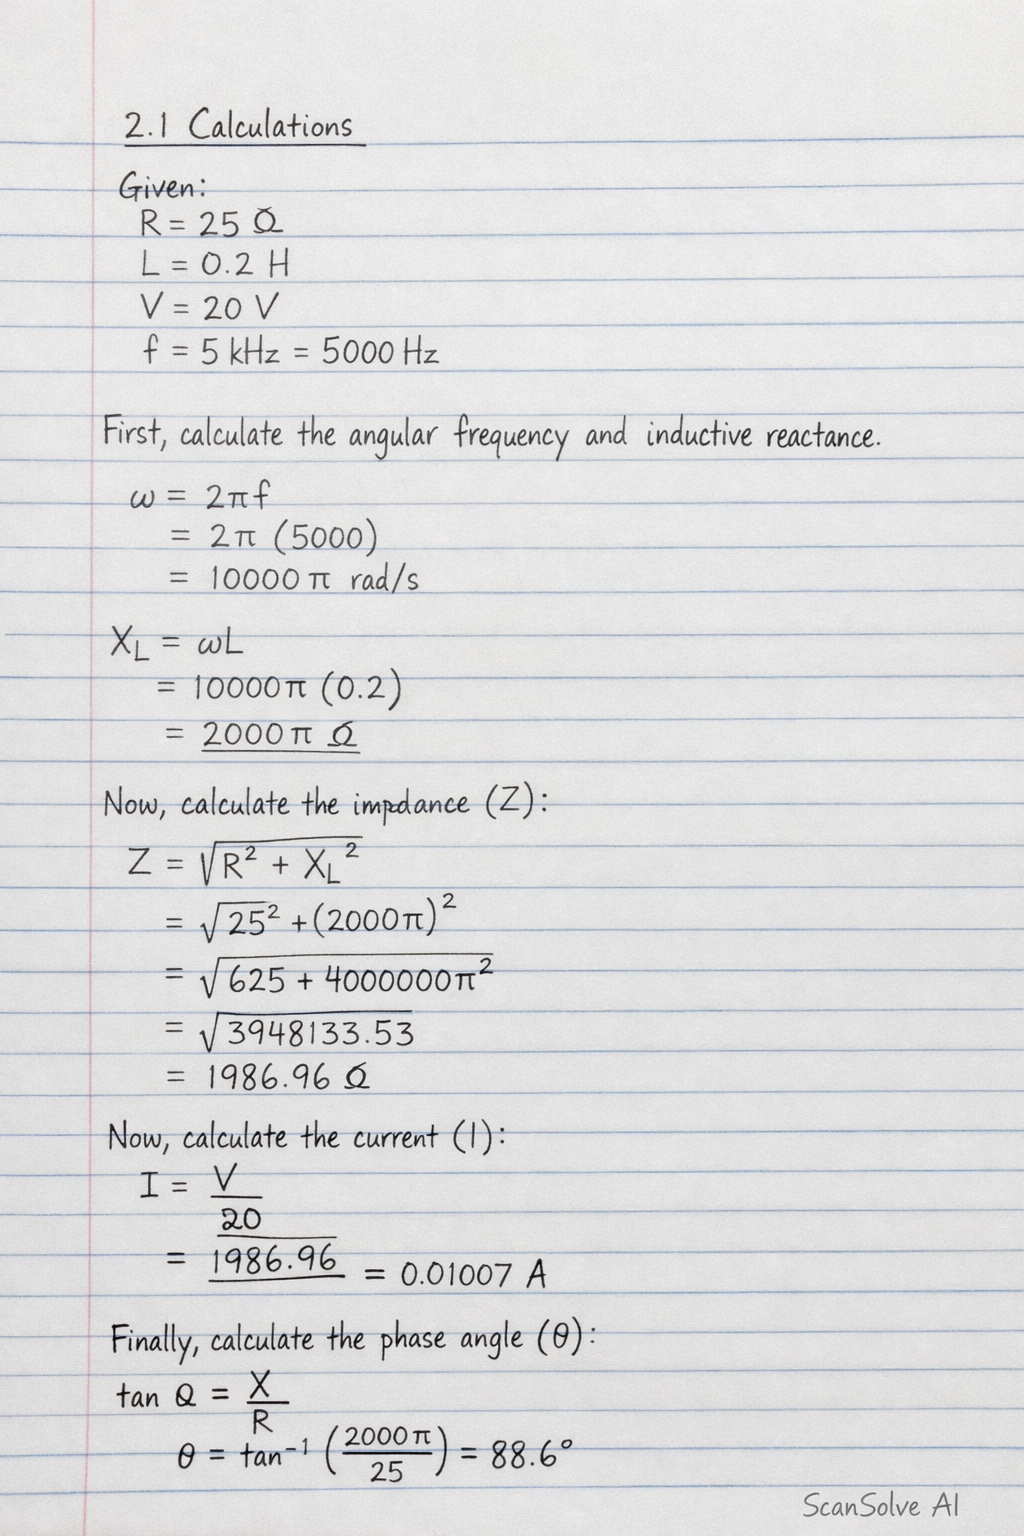 2.1 Calculations
Given:
R = 25 Ω
L = 0.2 H
V = 20 V
f = 5 kHz = 5000 Hz
First, calculate the angular frequency and inductive reactance.
ω = 2πf
= 2π (5000)
= 10000 π rad/s
X_L = ωL
= 10000π (0.2)
= 2000π Ω
Now, calculate the impdance (Z):
Z = √R² + X_L²
= √25² + (2000π)²
= √625 + 4000000π²
= √3948133.53
= 1986.96 Ω
Now, calculate the current (I):
I = V
20
= 1986.96 = 0.01007 A
Finally, calculate the phase angle (θ):
tan Q = X/R
θ = tan⁻¹ (2000π/25) = 88.6°
ScanSolve AI